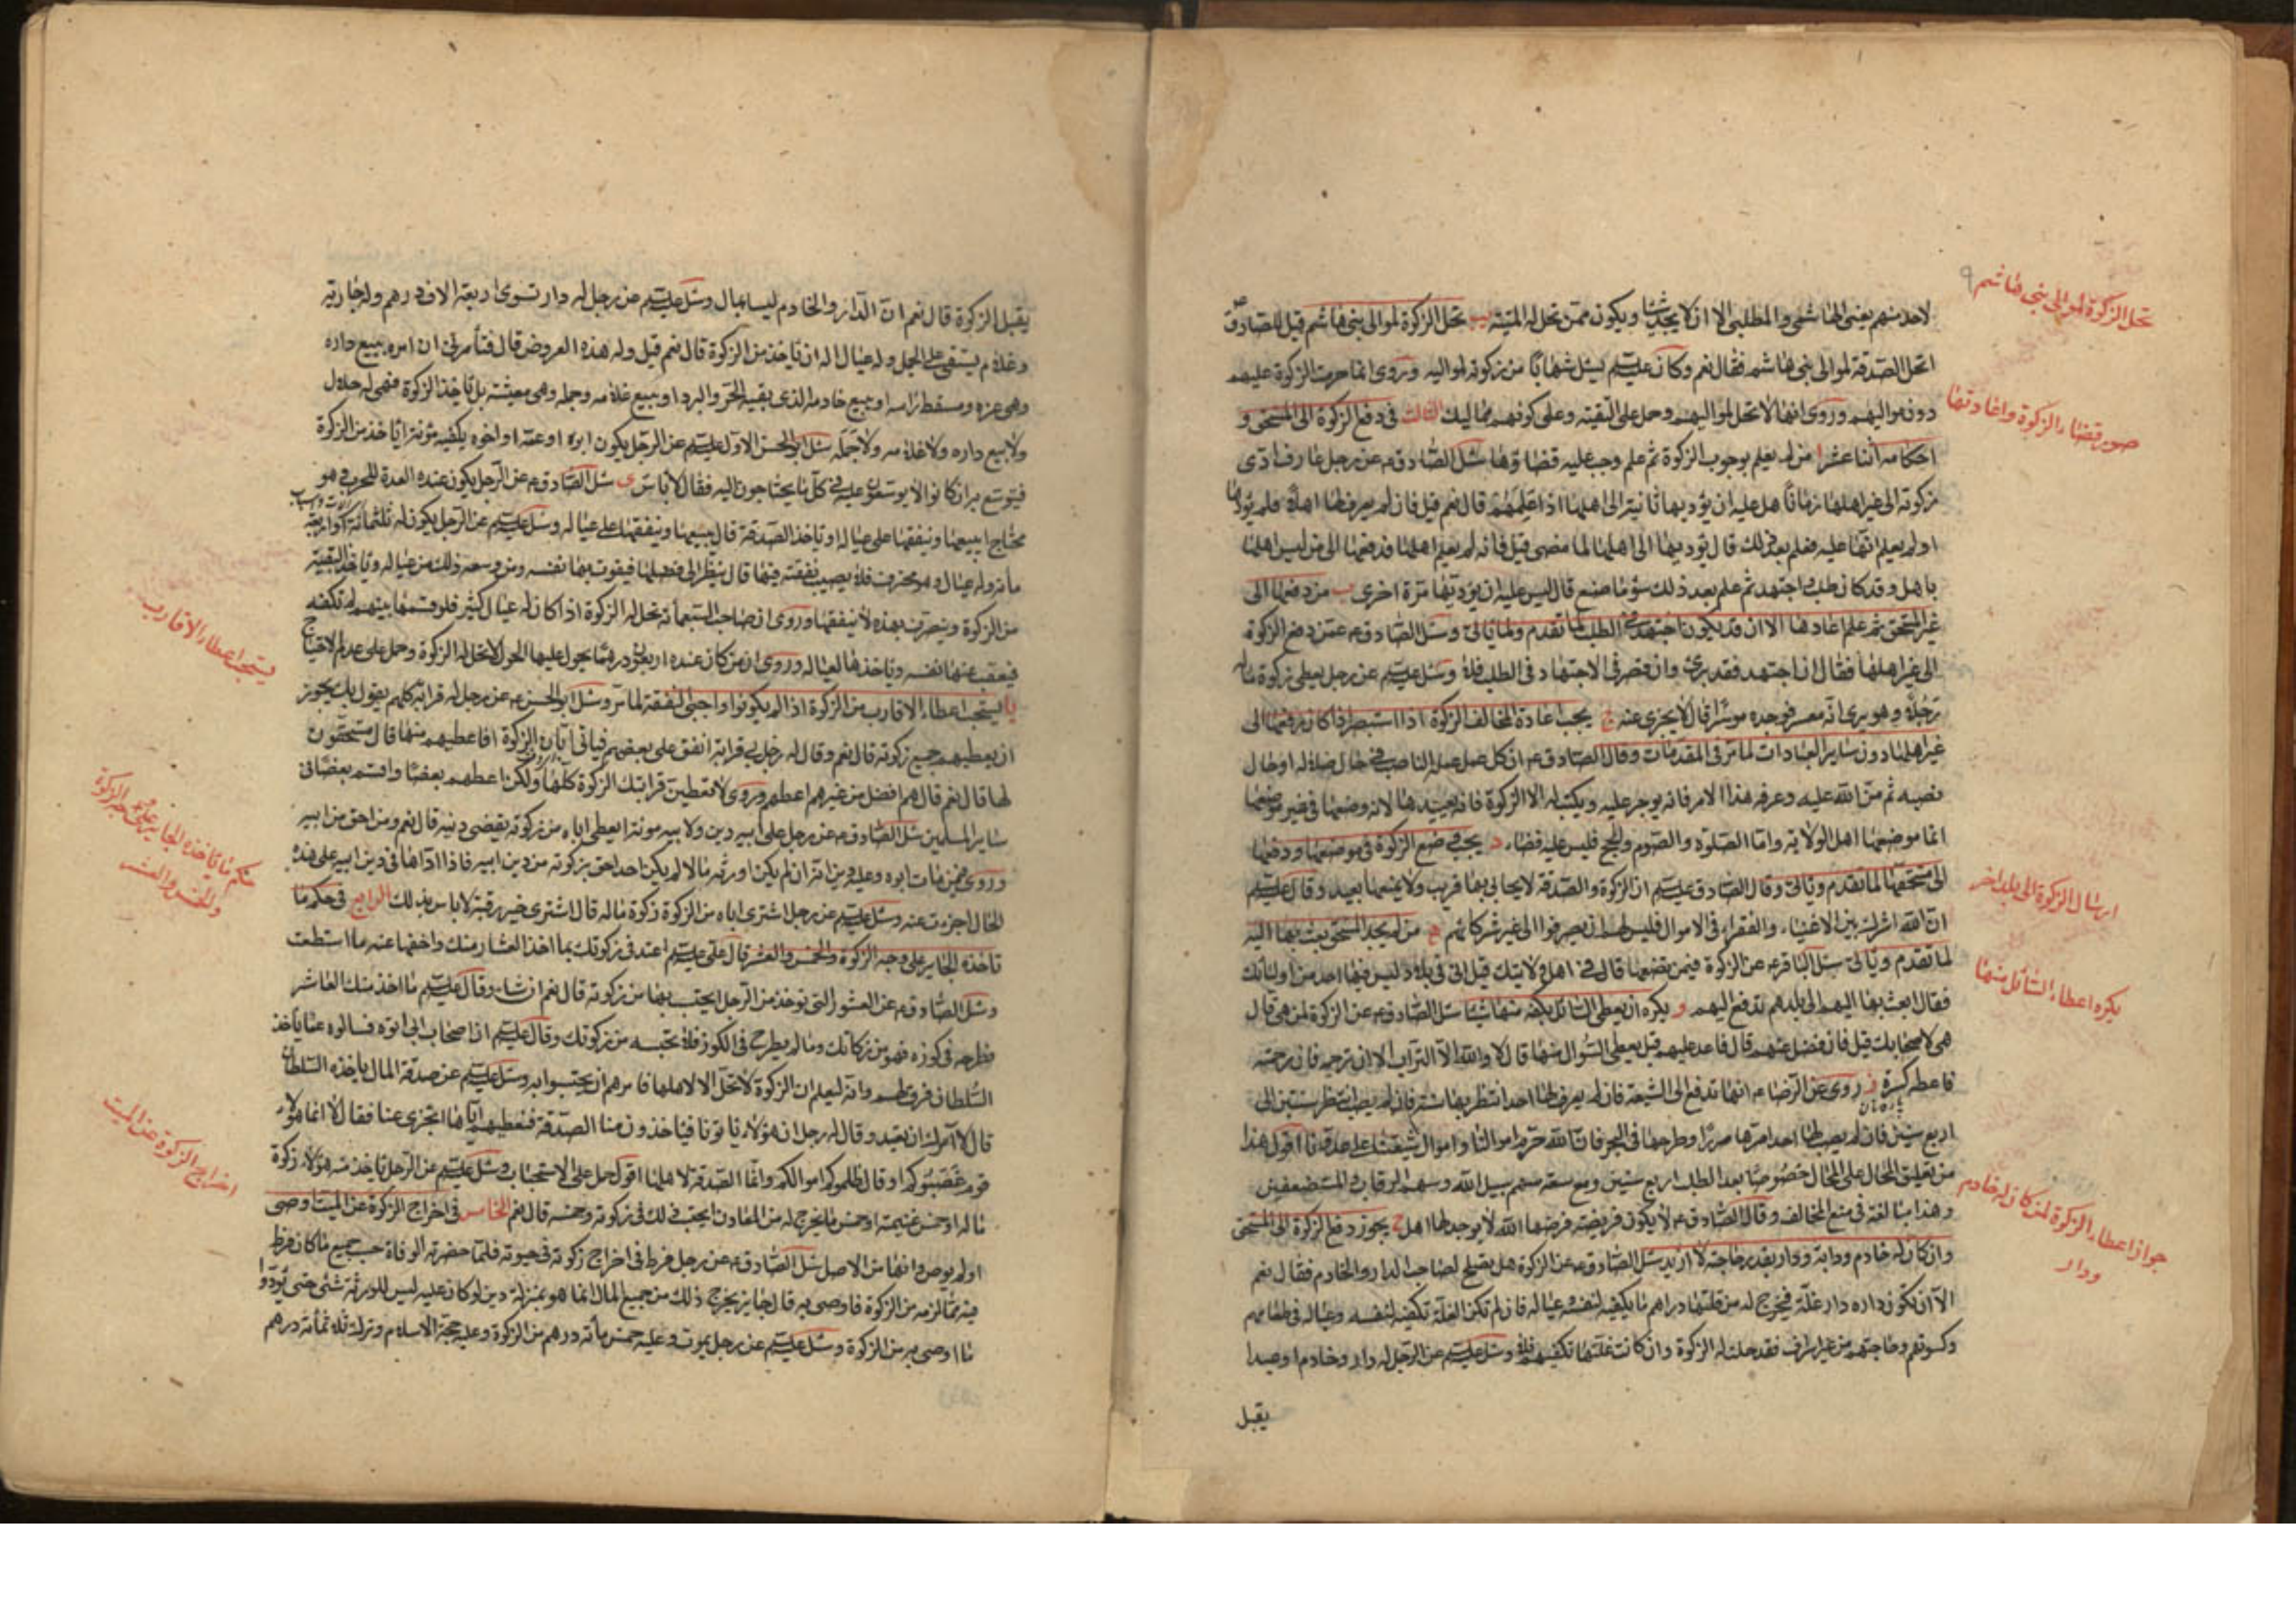 تحل الزكوة لموالى بنى هاشم
لاحد منهم يعنى الهاشمى والمطلبى الا ان لا يجد شيئا ويكون ممن تحل له الميتة يب تحل الزكوة لموالى بنى هاشم قيل للصادق
اتحل الصدقة لموالى بنى هاشم فقال نعم وكان عليسلم يسئل شهابا من زكوته لمواليه وروى انما حرمت الزكوة عليهم
صور قضاء الزكوة واعادتها
دون مواليهم وروى انها لا تحل لمواليهم وحمل على التقية وعلى كونهم مماليك الثالث فى دفع الزكوة الى المستحق و
احكامه اثنا عشر ا من لم يعلم بوجوب الزكوة ثم علم وجب عليه قضاؤها سئل الصادق ع عن رجل عارف ادى
زكوته الى غير اهلها زمانا هل عليه ان يؤديها ثانية الى اهلها اذا علمهم قال نعم قيل فان لم يعرف لها اهلا فلم يؤدها
او لم يعلم انها عليه فعلم بعد ذلك قال يؤديها الى اهلها لما مضى قيل فانه لم يعلم اهلها فدفعها الى من ليس اهلها
باهل وقد كان طلب واجتهد ثم علم بعد ذلك سوء ما صنع قال ليس عليه ان يؤديها مرة اخرى ب من دفعها الى
غير المستحق ثم علم اعادها الا ان قد يكون اجتهد فى الطلب لما تقدم ولما ياتى وسئل الصادق ع عمن دفع الزكوة
الى غير اهلها فقال ان اجتهد فقد برئ وان قصر فى الاجتهاد فى الطلب فلا وسئل عليسلم عن رجل يعطى زكوة ماله
رجلا وهو يرى انه معسر فوجده موسرا قال لا يجزى عنه ج يجب اعادة المخالف الزكوة اذا استبصر اذا كان دفعها الى
غير اهلها دون ساير العبادات لما مر فى المقدمات وقال الصادق ع ان كل عمل عمله الناصب فى حال ضلاله او حال
نصبه ثم من الله عليه وعرفه هذا الامر فانه يوجر عليه ويكتب له الا الزكوة فانه يعيدها لانه وضعها فى غير موضعها
انما موضعها اهل الولاية واما الصلوة والصوم والحج فليس عليه قضاء د يجب وضع الزكوة فى موضعها ودفعها
ارسال الزكوة الى بلد اخر
الى مستحقها لما تقدم وياتى وقال الصادق عليسلم ان الزكوة والصدقة لا يحابى بها قريب ولا يمنعها بعيد وقال عليسلم
ان الله اشرك بين الاغنياء والفقراء فى الاموال فليس لهم ان يصرفوا الى غير شركائهم ه من لم يجد المستحق بعث بها اليه
يكره اعطاء السائل منها
لما تقدم وياتى سئل الباقر ع عن الزكوة فيمن نضعها قال فى اهل ولايتك قيل انى فى بلاد ليس فيها احد من اوليائك
فقال ابعث بها اليهم الى بلدهم تدفع اليهم و يكره ان يعطى السائل بكفه منها شيئا سئل الصادق ع عن الزكوة لمن هى قال
هى لاصحابك قيل فان فضل عنهم قال فاعد عليهم قيل يعطى السؤال منها قال لا والله الا التراب الا ان ترحمه فان رحمته
فاعطه كسرة ز روى عن الرضا ع انها تدفع الى الشيعة فان لم يعرف لها احدا انتظر بها سنة فان لم يصب انتظر سنتين الى
اربع سنين فان لم يصب لها احدا صرها صررا وطرحها فى البحر فان الله حرم اموالنا واموال شيعتنا على عدونا اقول هذا
جواز اعطاء الزكوة لمن كان له خادم
ودار
من تعليق المحال على المحال خصوصا بعد الطلب اربع سنين ومع سعة سهم سبيل الله وسهم الرقاب والمستضعفين
وهذا مبالغة فى منع المخالف وقال الصادق ع لا يكون فريضة فرضها الله لا يوجد لها اهل ح يجوز دفع الزكوة الى المستحق
وان كان له خادم ودابة ودار بقدر حاجته لا ازيد سئل الصادق ع عن الزكوة هل يصلح لصاحب الدار والخادم فقال نعم
الا ان تكون داره دار غلة فيخرج له من غلتها دراهم ما يكفيه لنفسه وعياله فان لم تكن الغلة تكفيه لنفسه وعياله فى طعامهم
وكسوتهم وحاجتهم من غير اسراف فقد حلت له الزكوة وان كانت غلتها تكفيهم فلا وسئل عليسلم عن الرجل له دار وخادم او عبد ا
يقبل
يقبل الزكوة قال نعم ان الدار والخادم ليسا بمال وسئل عليسلم عن رجل له دار تسوى اربعة الاف درهم وله جارية
وغلام يستقى على الجمل وله عيال اله ان ياخذ من الزكوة قال نعم قيل وله هذه العروض قال فتأمرنى ان امره ببيع داره
وهى عزه ومسقط راسه او ببيع خادمه الذى يقيه الحر والبرد او يبيع غلامه وجمله وهى معيشته بل ياخذ الزكوة فهى له حلال
ولا يبيع داره ولا غلامه ولا جمله سئل ابو الحسن الاول عليسلم عن الرجل يكون ابوه او عمه او اخوه يكفيه مؤنته ا ياخذ من الزكوة
فيتوسع به ان كانوا لا يوسعون عليه فى كل ما يحتاجون اليه فقال لا باس ى سئل الصادق ع عن الرجل يكون عنده العدة للحرب وهو
محتاج ا يبيعها وينفقها على عياله او ياخذ الصدقة قال يبيعها وينفقها على عياله وسئل عليسلم عن الرجل يكون له ثلثمائة او اربعة
مأته وله عيال وهو محترف فلا يصيب نفقته فيها قال ينظر الى فضلها فيقوت بها نفسه ومن وسعه ذلك من عياله وياخذ البقية
من الزكوة ويتصرف بهذه لا ينفقها وروى ان صاحب السبعمأة تحل له الزكوة اذا كان له عيال كثير فلو قسمها بينهم لم تكفه
يستحب اعطاء الاقارب
فيعف عنها نفسه وياخذها لعياله وروى ان من كان عنده اربعون درهما يحول عليها الحول لا تحل له الزكوة وحمل على عدم الاحتياج
يا يستحب اعطاء الاقارب من الزكوة اذا لم يكونوا واجبى النفقة لما مر وسئل ابو الحسن ع عن رجل له قرابة كلهم يقول بك يجوز
ان يعطيهم جميع زكوته قال نعم وقال له رجل لى قرابة انفق على بعضهم فياتى ابان الزكوة افاعطيهم منها قال مستحقون
لها قال نعم قال هم افضل من غيرهم اعطهم وروى لا تعطين قرابتك الزكوة كلها ولكن اعطهم بعضا واقسم بعضا فى
حكم ما ياخذه الجاير على وجه الزكوة
والخمس والعشر
ساير المسلمين سئل الصادق ع عن رجل على ابيه دين ولابيه مؤنة ا يعطى اباه من زكوته يقضى دينه قال نعم ومن احق من ابيه
وروى فيمن مات ابوه وعليه دين انه ان لم يكن اورثه مالا لم يكن احد احق بزكوته من دين ابيه فاذا اداها فى دين ابيه على هذه
الحال اجزءت عنه وسئل عليسلم عن رجل اشترى اباه من الزكوة زكوة ماله قال اشترى خير رقبة لا باس بذلك الرابع فى حكم ما
تاخذه الجاير على وجه الزكوة والخمس والعشر قال على عليسلم اعتد فى زكوتك بما اخذ العشار منك واخفها عنه ما استطعت
وسئل الصادق ع عن العشور التى توخذ من الرجل ايحتسب بها من زكوته قال نعم ان شاء وقال عليسلم ما اخذ منك العاشر
فطرحه فى كوزه فهو من زكاتك وما لم يطرح فى الكوز فلا تحتسبه من زكوتك وقال عليسلم ان اصحاب ابى اتوه فسالوه عما ياخذ
السلطان فرق لهم وانه ليعلم ان الزكوة لا تحل الا لاهلها فامرهم ان يحتسبوا به وسئل عليسلم عن صدقة المال ياخذه السلطان
اخراج الزكوة عن الميت
قال لا امرك ان تعيد وقال له رجل ان هؤلاء ياتونا فياخذون منا الصدقة فنعطيهم اياها اتجزى عنا فقال لا انما هؤلاء
قوم غصبوكم او قال ظلموكم اموالكم وانما الصدقة لاهلها اقول حمل على الاستحباب وسئل عليسلم عن الرجل ياخذ منه هؤلاء زكوة
ماله او خمس غنيمته او خمس ما يخرج له من المعادن ايحتسب ذلك فى زكوته وخمسه قال نعم الخامس فى اخراج الزكوة عن الميت اوصى
او لم يوص وانها من الاصل سئل الصادق ع عن رجل فرط فى اخراج زكوته فى حيوته فلما حضرته الوفاة حسب جميع ما كان فرط
فيه مما لزمه من الزكوة فاوصى به قال جايز يخرج ذلك من جميع المال انما هو بمنزلة دين لو كان عليه ليس للورثة شئ حتى يؤدوا
ما اوصى به من الزكوة وسئل عليسلم عن رجل يموت وعليه خمس مأته درهم من الزكوة وعليه حجة الاسلام وترك ثلاثمأته درهم